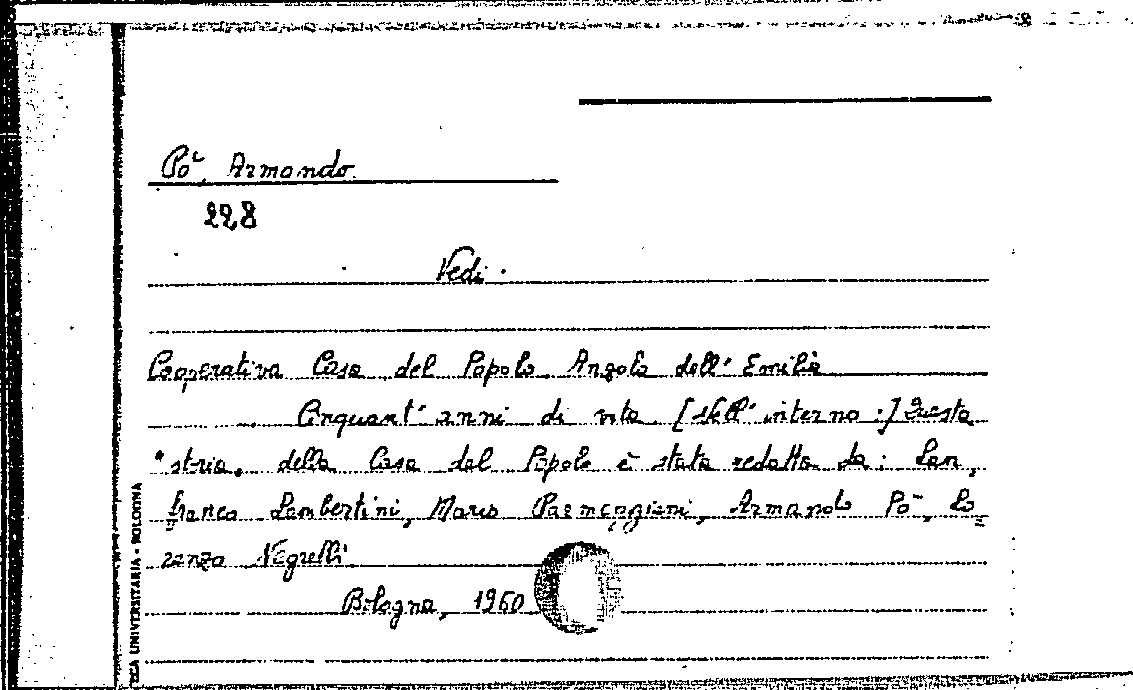 Pò, Armando.
228
Vedi.
Cooperativa Casa del Popolo Anzola dell' Emilia
Cinquant' anni di vita [dell' interno:] Questa
"storia" della Casa del Popolo è stata redatta da: Lan=
franco Lambertini, Mario Parmeggiani, Armando Pò, Lo=
renzo Negrelli
Bologna, 1960
ECA UNIVERSITARIA - BOLOGNA